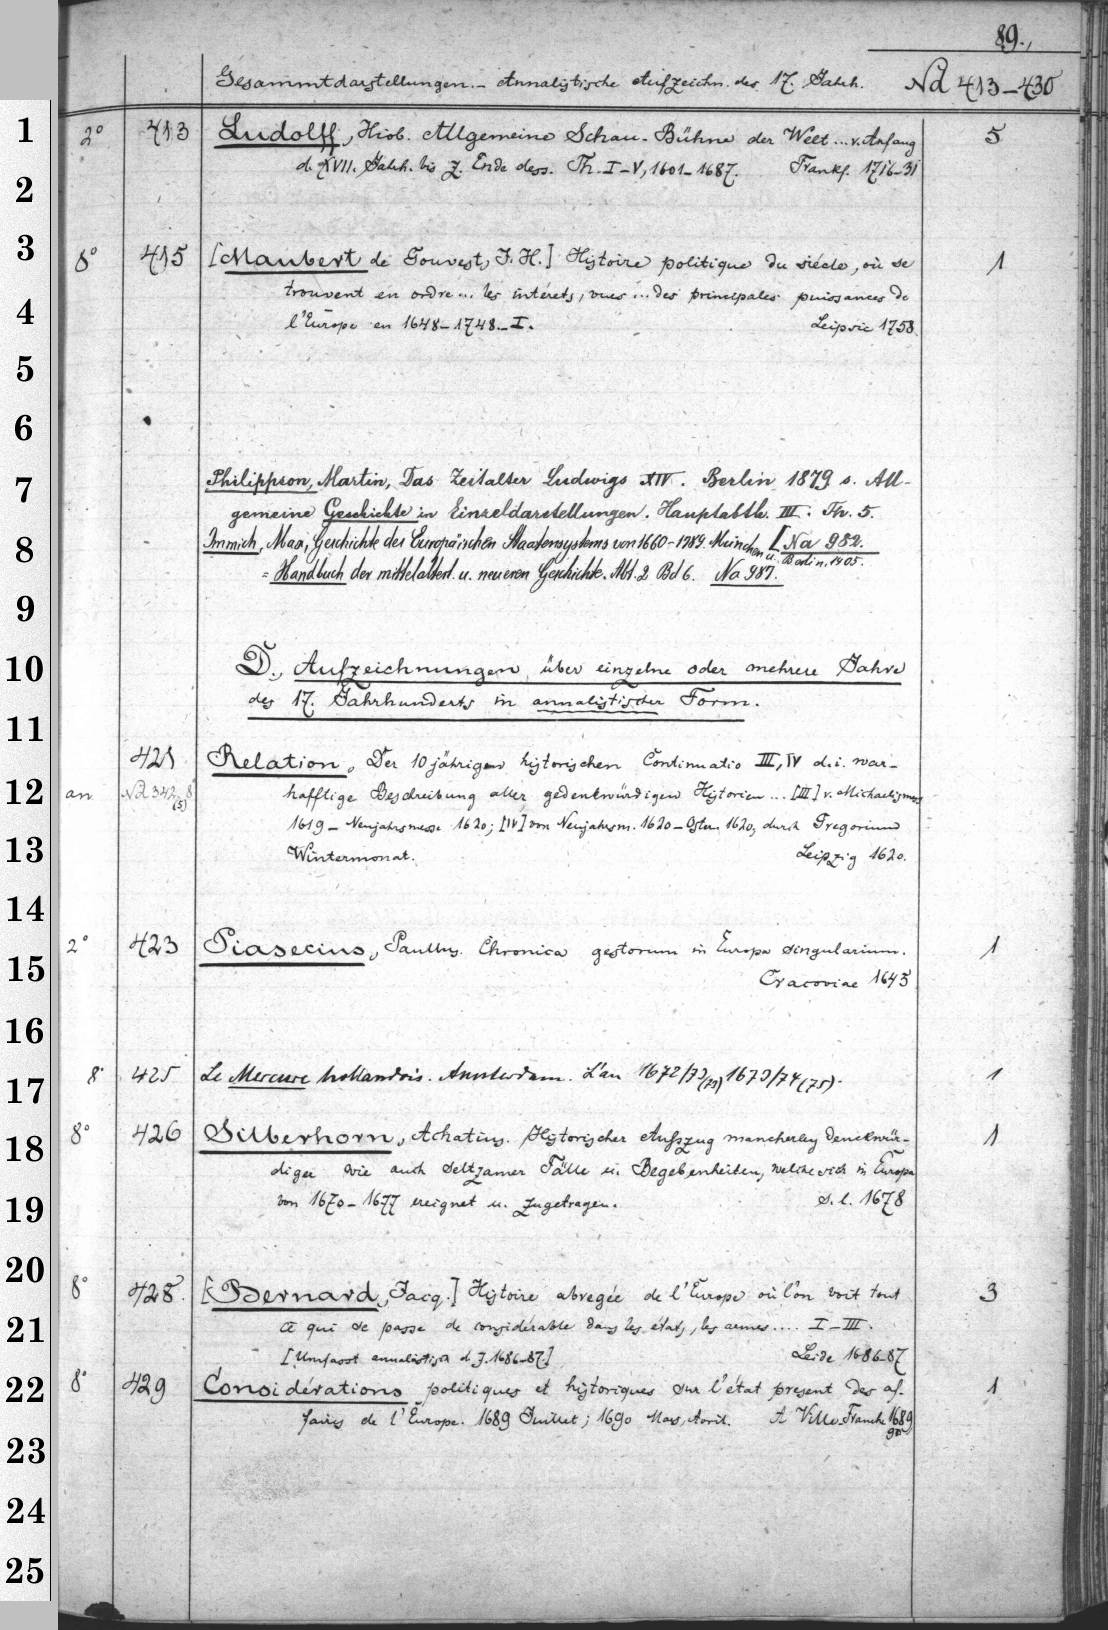 89.
Gesammtdarstellungen. – Annalistische Aufzeichn. des 17. Jahrh. Nd 413–430
1 2° 413 Ludolff, Hiob. Allgemeine Schau-Bühne der Welt ... v. Anfang 5
2 d. XVII. Jahrh. bis z. Ende dess. Th. I–V, 1601–1687. Frankf. 1716–31
3 8° 415 [Maubert de Gouvest, J. H.] Histoire politique du siécle, où se 1
trouvent en ordre ... les intérets, vues ... des principales puissances de
4 l'Europe en 1648–1748. – I. Leipsic 1758.
5
6
7 Philippson, Martin, Das Zeitalter Ludwigs XIV. Berlin 1879 s. All-
gemeine Geschichte in Einzeldarstellungen. Hauptabth. III. Th. 5.
8 Immich, Max, Geschichte des Europäischen Staatensystems von 1660–1789. München u. Berlin, 1905. [Na 982.
= Handbuch der mittelalterl. u. neueren Geschichte. Abt. 2 Bd 6. Na 987.
9
10 D., Aufzeichnungen über einzelne oder mehrere Jahre
des 17. Jahrhunderts in annalistischer Form.
11
421 Relation, Der 10 jährigen historischen Continuatio III, IV d. i. war-
12 an Nd 342 (5) 8° hafftige Beschreibung aller gedenkwürdigen Historien ... [III] v. Michaelismess
1619 – Neujahrsmesse 1620; [IV] von Neujahrsm. 1620 – Ostern 1620, durch Gregorium
13 Wintermonat. Leipzig 1620.
14
2° 423 Piasecius, Paullus. Chronica gestorum in Europa singularium. 1
15 Cracoviae 1645
16
17 8° 425 Le Mercure hollandois. Amsterdam. L'an 1672/73 (73) 1673/74 (75). 1
18 8° 426 Silberhorn, Achatius. Historischer Auszug mancherley denckwür- 1
diger wie auch seltzamer Fälle u. Begebenheiten, welche sich in Europa
19 von 1670–1677 ereignet u. zugetragen. S. l. 1678
20
8° 428. [Bernard, Jacq.] Histoire abregée de l'Europe où l'on voit tout 3
21 ce qui se passe de considérable dans les états, les armes .... I–III.
[Umfasst annalistisch d. J. 1686–87.] Leide 1686–87
22 8° 429 Considérations politiques et historiques sur l'état present des af- 1
faires de l'Europe. 1689 Juillet; 1690 Mars, Avril. A Ville-Franche 1689
90
23
24
25